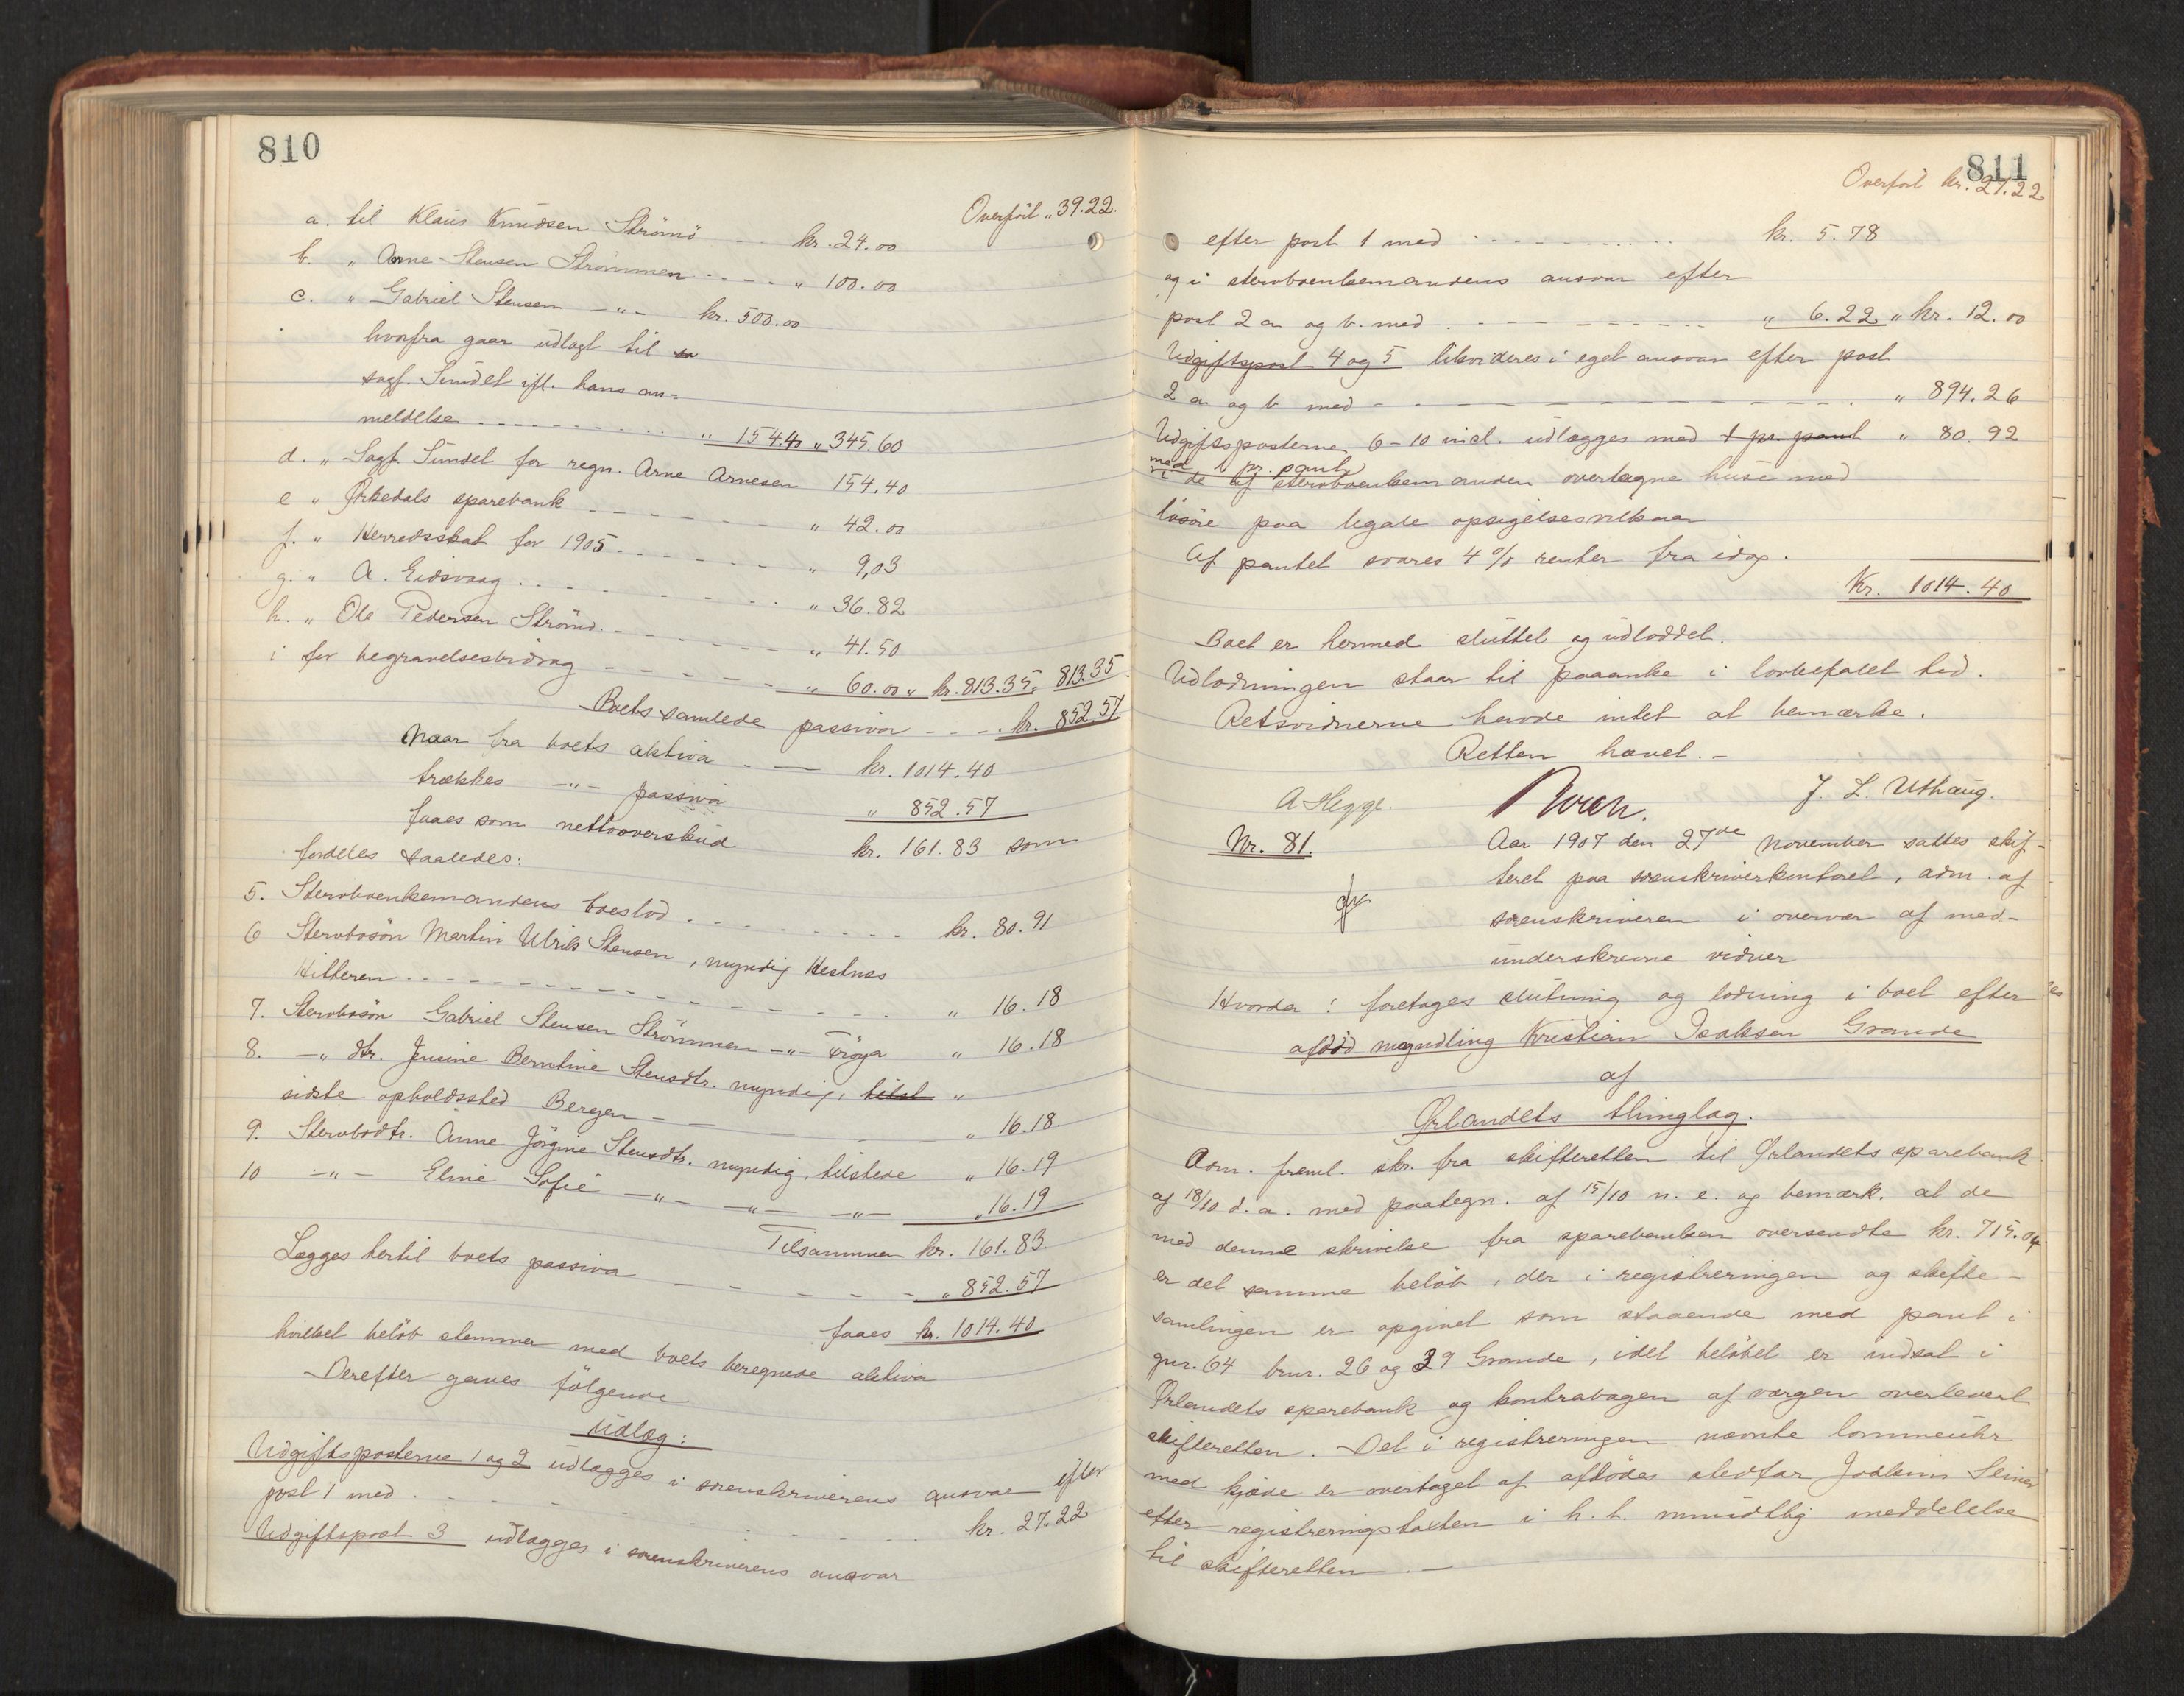 810
Overført „ 39.22.
a. til Klaus Knudsen Strömö - - kr. 24.00
b. „ Arne Stensen Strömmen - - - - „ 100.00
c. „ Gabriel Stensen -„- kr. 500.00
hvorfra gaar udlagt til
sagf. Sundet ifl. hans an-
meldelse - - - - „ 154.40 „ 345.60
d. „ Sagf. Sundet for regn. Arne Arnesen 154.40
e „ Örkedals sparebank - - - - „ 42.00
f. „ Herredsskat for 1905 - - - - „ 9,03
g. „ A. Eidsvaag - - - - „ 36.82
h. „ Ole Pedersen Strömö - - - - „ 41.50
i for begravelsesbidrag - - - - „ 60.00 „ kr. 813.35, 813.35
Boets samlede passiva - - - kr. 852.57
Naar fra boets aktiva - - kr. 1014.40
trækkes -„- passiva „ 852.57
faaes som nettooverskud kr. 161.83 som
fordeles saaledes:
5. Stervboenkemandens boeslod - - - - kr. 80.91
6 Stervbosön Martin Ulrik Stensen, myndig Hestnes
Hitteren - - - - „ 16.18
7. Stervbosön Gabriel Stensen Strömmen -„- Fröya „ 16.18
8. -„ dtr. Jensine Berntine Stensdtr. myndig, tilst „
sidste opholdssted Bergen - - - „ 16.18.
9. Stervbodtr. Anne Jörgine Stensdtr. myndig, tilstede „ 16.19
10 -„- Eline Sofie -„- -„- -„- „ 16.19
Tilsammen kr. 161.83.
Lægges hertil boets passiva - - - - „ 852.57
faaes kr. 1014.40
hvilket belöb stemmer med boets beregnede aktiva
Derefter gaves fölgende
Udlæg:
Udgiftsposterne 1 og 2 udlægges i sorenskriverens ansvar efter
post 1 med - - - - kr. 27.22
Udgiftspost 3 udlægges i sorenskriverens ansvar
811
Overfört kr. 27.22
efter post 1 med - - - - kr. 5.78
og i stervboenkemandens ansvar efter
post 2 a og b. med - - - - „ 6.22 „ kr. 12.00
Udgiftspost 4 og 5 likvideres i eget ansvar efter post
2 a og b med - - - - „ 894.26
Udgiftsposterne 6-10 incl. udlægges med 1 pr. pant „ 80.92
med 1 pr. pant
i de af stervboenkemanden overtagne huse med
lösöre paa legale opsigelsesvilkaar
Af pantet svares 4 % renter fra idag.
Kr. 1014.40
Boet er hermed sluttet og udloddet.
Udlodningen staar til paaanke i lovbefalet tid.
Retsvidnerne havde intet at bemærke.
Retten hævet. -
A Hegge. J. L. Uthaug.
Nr. 81.
Aar 1907 den 27de November sattes skif-
teret paa sorenskriverkontoret, adm. af
sorenskriveren i overvær af med-
underskrevne vidner
Hvorda! foretages slutning og lodning i boet efter
afdöd myndling Kristian Isaksen Grande
af
Ørlandets thinglag.
Adm. freml. skr. fra skifteretten til Ørlandets sparebank
af 18/10 d. a. med paategn. af 15/10 n. e. og bemærk. at de
med denne skrivelse fra sparebanken oversendte kr. 715.04
er det samme belöb, der i registreringen og skifte-
samlingen er opgivet som staaende med pant i
gnr. 64 brnr. 26 og 39 Grande, idet belöbet er indsat i
Ørlandets sparebank og kontrabogen af værgen overleveret
skifteretten. Det i registreringen nævnte lommeuhr
med kjæde er overtaget af afdödes stedfar
efter registreringstaxten i h. t. mundtlig meddelelse
til skifteretten. -